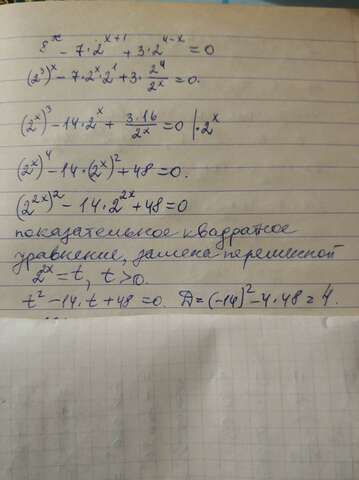 8^x - 7·2^{x+1} + 3·2^{4-x} = 0
(2^3)^x - 7·2^x·2^1 + 3·\frac{2^4}{2^x} = 0.
(2^x)^3 - 14·2^x + \frac{3·16}{2^x} = 0 |·2^x
(2^x)^4 - 14·(2^x)^2 + 48 = 0.
(2^{2x})^2 - 14·2^{2x} + 48 = 0
показательное квадратное
уравнение, замена переменной
2^x = t, t > 0.
t^2 - 14·t + 48 = 0. D = (-14)^2 - 4·48 = 4.